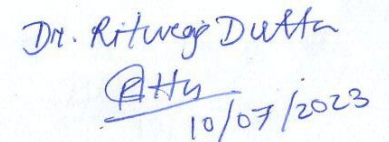 Dr. Rituraj Dutta
10/07/2023